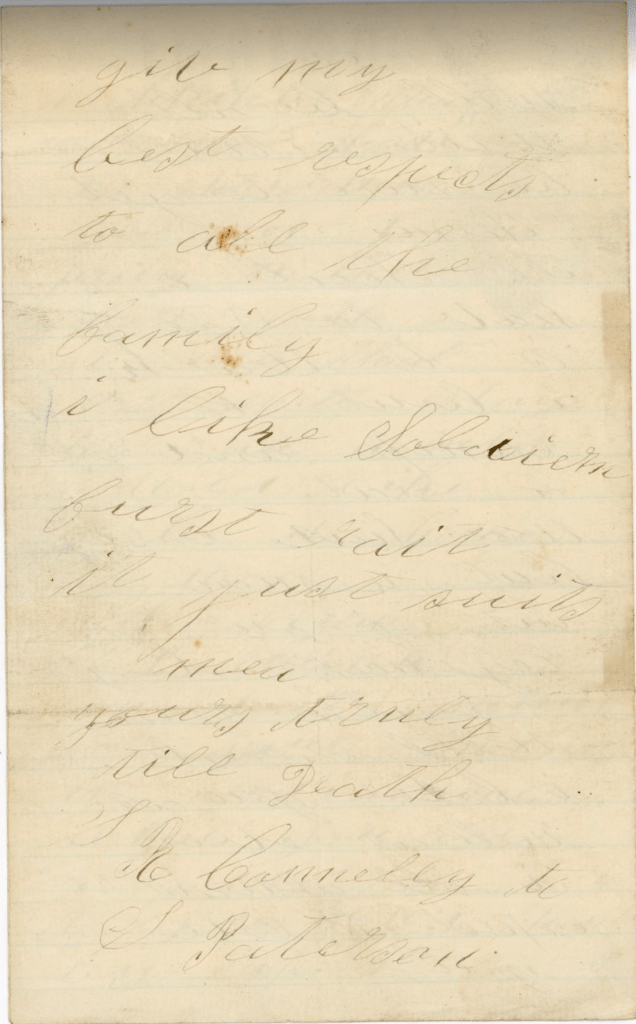 giv my
best respects
to all the
family
i like Soldiern
furst rait
it just suits
mea
yours truly
till Death
S R Connelly to
S Paterson